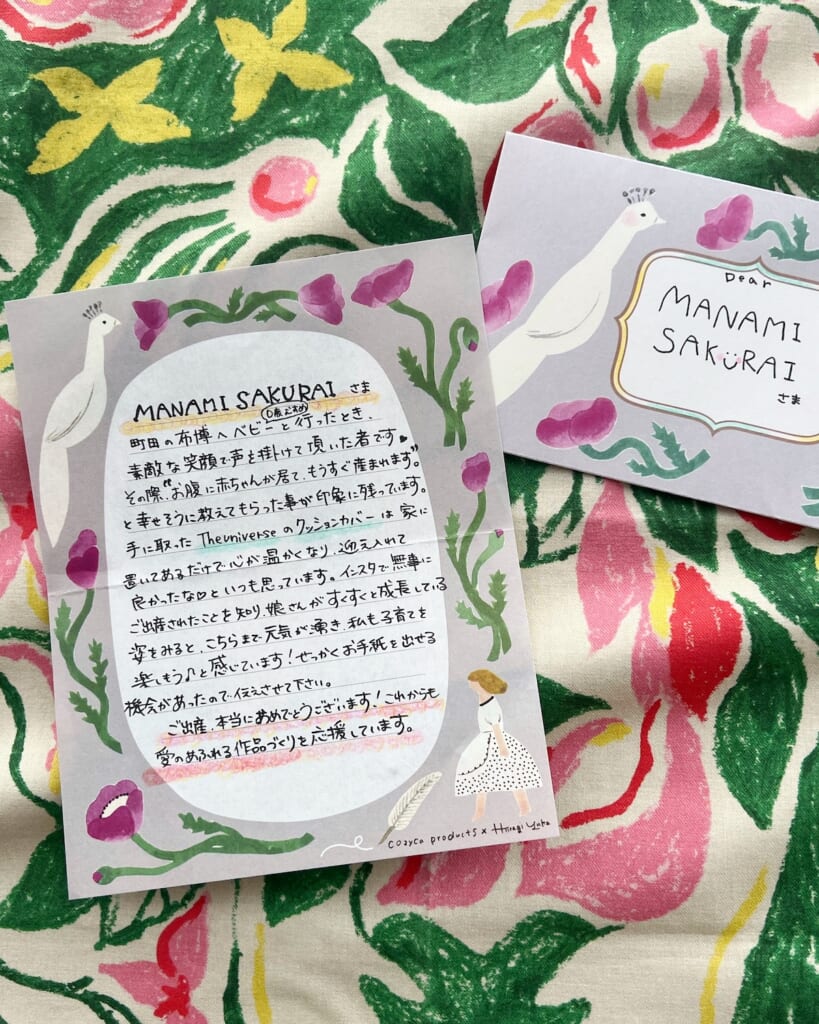 MANAMI SAKURAI さま
町田の布博へベビーと行ったとき、
素敵な笑顔で声を掛けて頂いた者です♥
その際、"お腹に赤ちゃんが居て、もうすぐ産まれます。"
と幸せそうに教えてもらった事が印象に残っています。
手に取った Theuniverse のクッションカバーは家に
置いてあるだけで心が温かくなり、迎え入れて
良かったな♡といつも思っています。インスタで無事に
ご出産されたことを知り、娘さんがすくすくと成長している
姿をみると、こちらまで元気が湧き、私も子育てを
楽しもう♪と感じています!せっかくお手紙を出せる
機会があったので、伝えさせて下さい。
ご出産、本当におめでとうございます!これからも
愛のあふれる作品づくりを応援しています。
cozyca products × Hiiragi Yuka
Dear
MANAMI
SAKURAI
さま